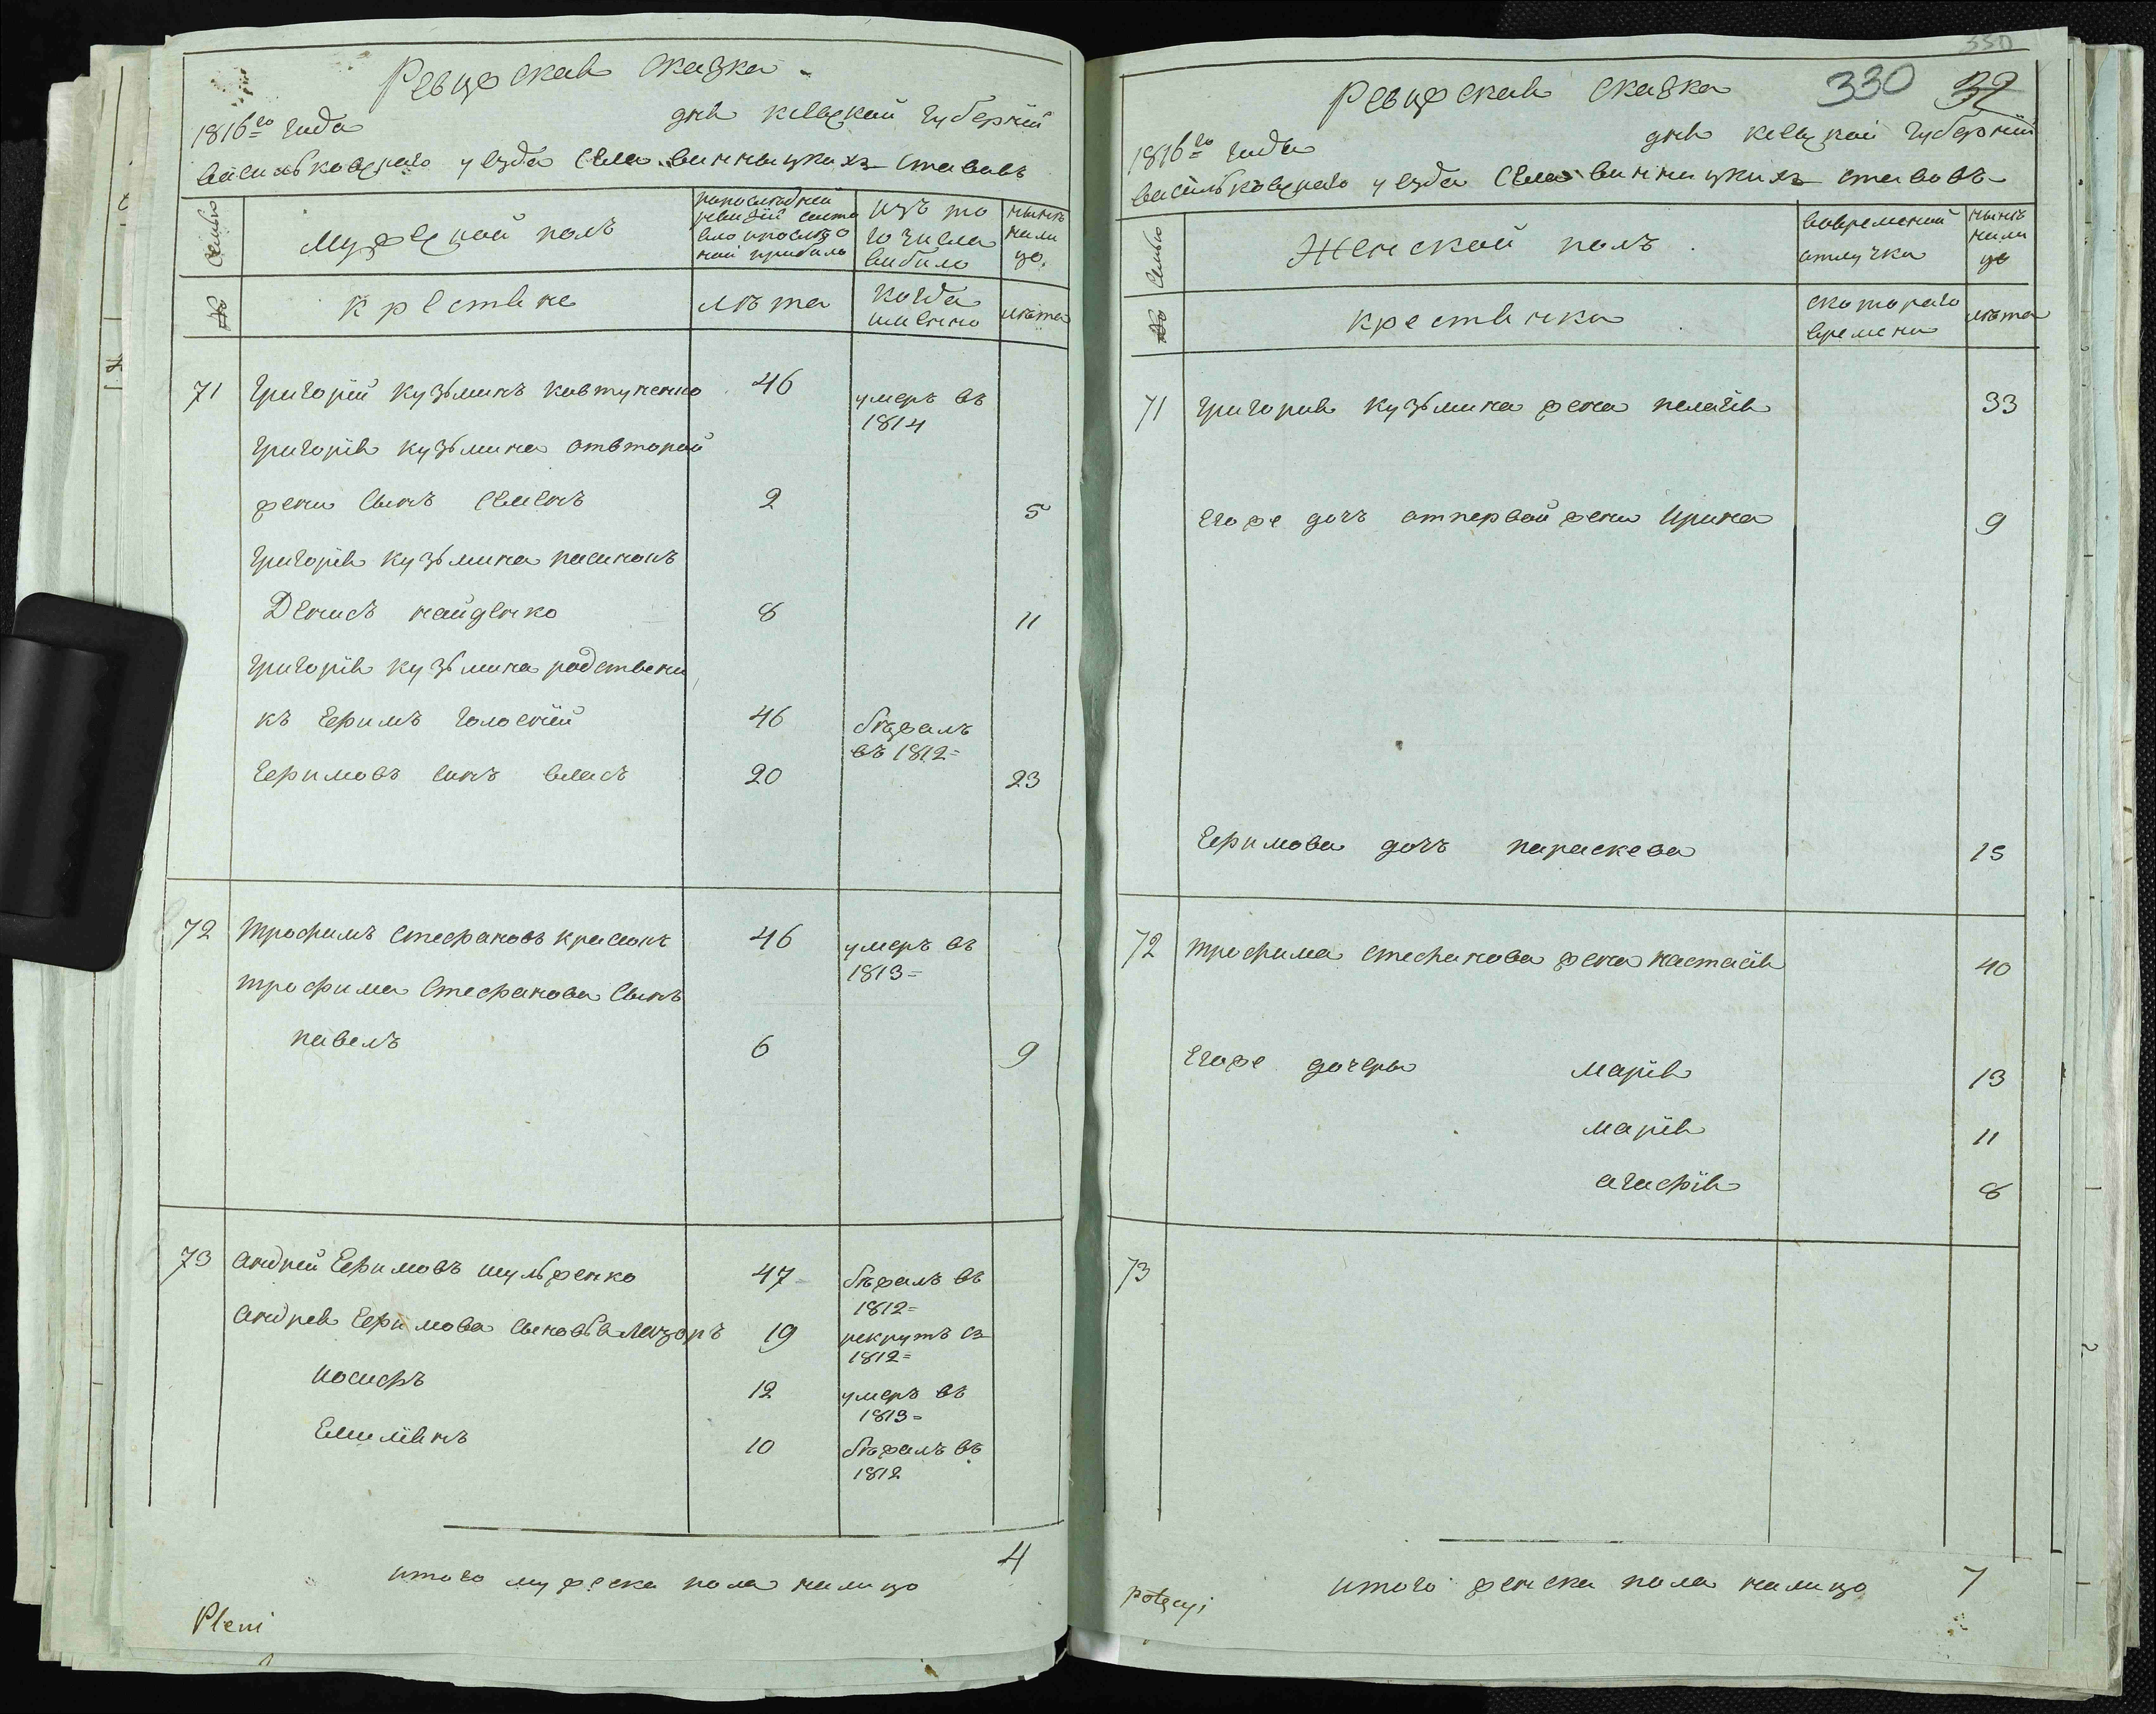 Ревижская сказка
1816го года дня киевской губернїи
васильковскаго уезда села винницкихъ ставовъ
Семьи
Мужеской полъ
попоследней ревизїи состояло ипослѣ оной прибыло
изъ того числа выбило
нынѣ налицо
№
крестьяне
лѣта
когда имянно
лѣта
71 григорїй кузьминъ ковтуненко 46 умеръ въ 1814
григорїя кузьмина отвторой
жены сынъ семенъ 2 5
григорїя кузьмина пасинокъ
Денисъ найденко 8 11
григорїя кузьмина родствени
къ Ефимъ голоснїй 46 бѣжалъ въ 1812
Ефимовъ синъ власъ 20 23
72 трофимъ стефановъ красюкъ 46 умеръ въ 1813
трофима стефанова сынъ
павелъ 6 9
73 андрей Ефимовъ шульженко 47 бѣжалъ въ 1812
андрея Ефимова сыновья лазоръ 19 рекрутъ съ 1812
иосифъ 12 умеръ въ 1813
Емилїянъ 10 бѣжалъ въ 1812
итого мужеска пола налицо 4
Pleni
330
330 32
Ревижская сказка
1816го года дня киевской губернїи
васильковскаго уезда села винницкихъ ставовъ
Семьи
Женской полъ
вовременной отлучки
нынѣ налицо
№
крестьянки
скотораго времени
лѣта
71 григория кузьмина жена пелагїя 33
Егоже дочъ отпервой жени ирина 9
Ефимова дочъ параскева 15
72 трофима стефанова жена настасїя 40
Егоже дочеры марїя 13
марїя 11
агафїя 8
73
итого женска пола налицо 7
potęcyi